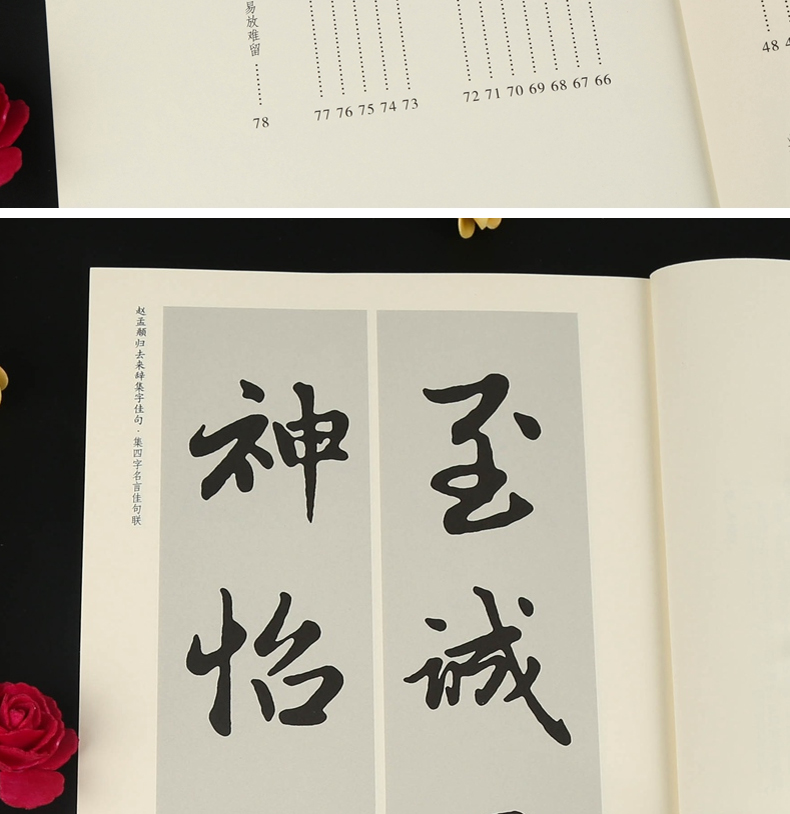 易放难留
78
77 76 75 74 73
72 71 70 69 68 67 66
48
赵孟頫归去来辞集字佳句·集四字名言佳句联
至诚
神怡